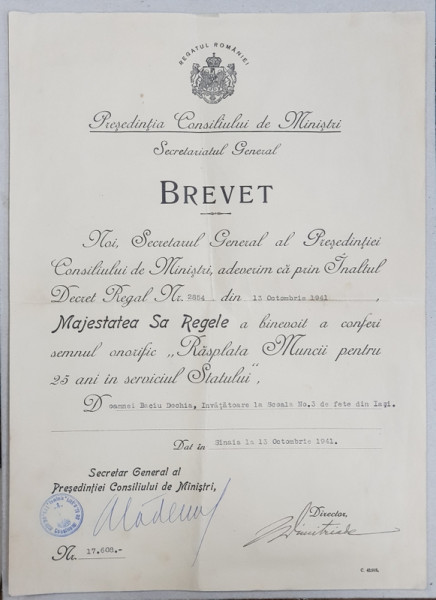 REGATUL ROMÂNIEI
Președinția Consiliului de Miniștri
Secretariatul General
BREVET
Noi, Secretarul General al Președinției
Consiliului de Miniștri, adeverim că prin Înaltul
Decret Regal Nr. 2854 din 13 Octombrie 1941,
Majestatea Sa Regele a binevoit a conferi
semnul onorific „Răsplata Muncii pentru
25 ani în serviciul Statului",
Doamnei Baciu Dochia, învățătoare la Scoala No.3 de fete din Iași.
Dat în Sinaia la 13 Octombrie 1941.
Secretar General al
Președinției Consiliului de Miniștri,
Director,
Dimitriade
Nr. 17.608.-